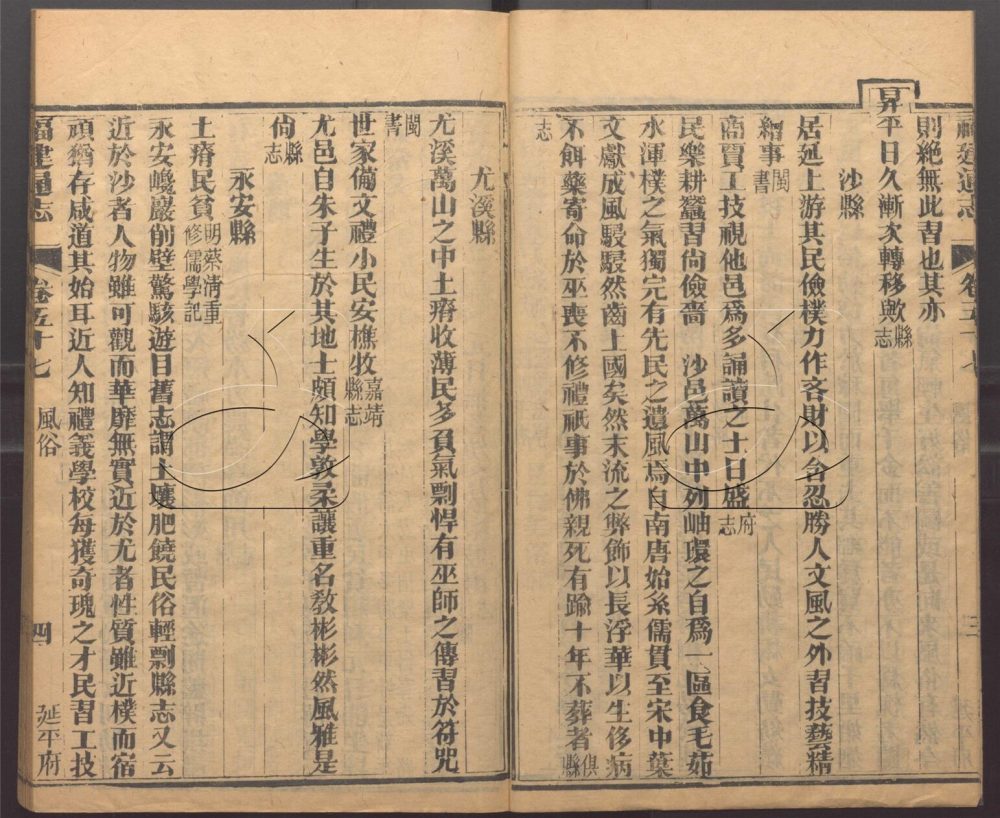 福建通志 卷五十七 三 延平府
則絶無此習也其亦
昇平日久漸次轉移歟縣志
沙縣
居延上游其民儉樸力作吝財以含忍勝人文風之外習技藝精
繪事閩書
商賈工技視他邑爲多誦讀之士日盛府志
民樂耕蠶習尙儉嗇 沙邑萬山中列岫環之自爲一區食毛茹
水渾樸之氣獨完有先民之遺風焉自南唐始系儒貫至宋中葉
文獻成風駸駸然齒上國矣然末流之弊飾以長浮華以生侈病
不餌藥寄命於巫喪不修禮祇事於佛親死有踰十年不葬者俱縣
志
尤溪縣
尤溪萬山之中土瘠收薄民多負氣剽悍有巫師之傳習於符咒
閩書
世家備文禮小民安樵牧嘉靖縣志
尤邑自朱子生於其地士頗知學敦柔讓重名敎彬彬然風雅是
尙縣志
永安縣
土瘠民貧明蔡清重修儒學記
永安巉巖削壁驚駭遊目舊志謂土壤肥饒民俗輕剽縣志又云
近於沙者人物雖可觀而華靡無實近於尤者性質雖近樸而宿
頑猶存咸道其始耳近人知禮義學校每獲奇瑰之才民習工技
福建通志 卷五十七 風俗 四 延平府